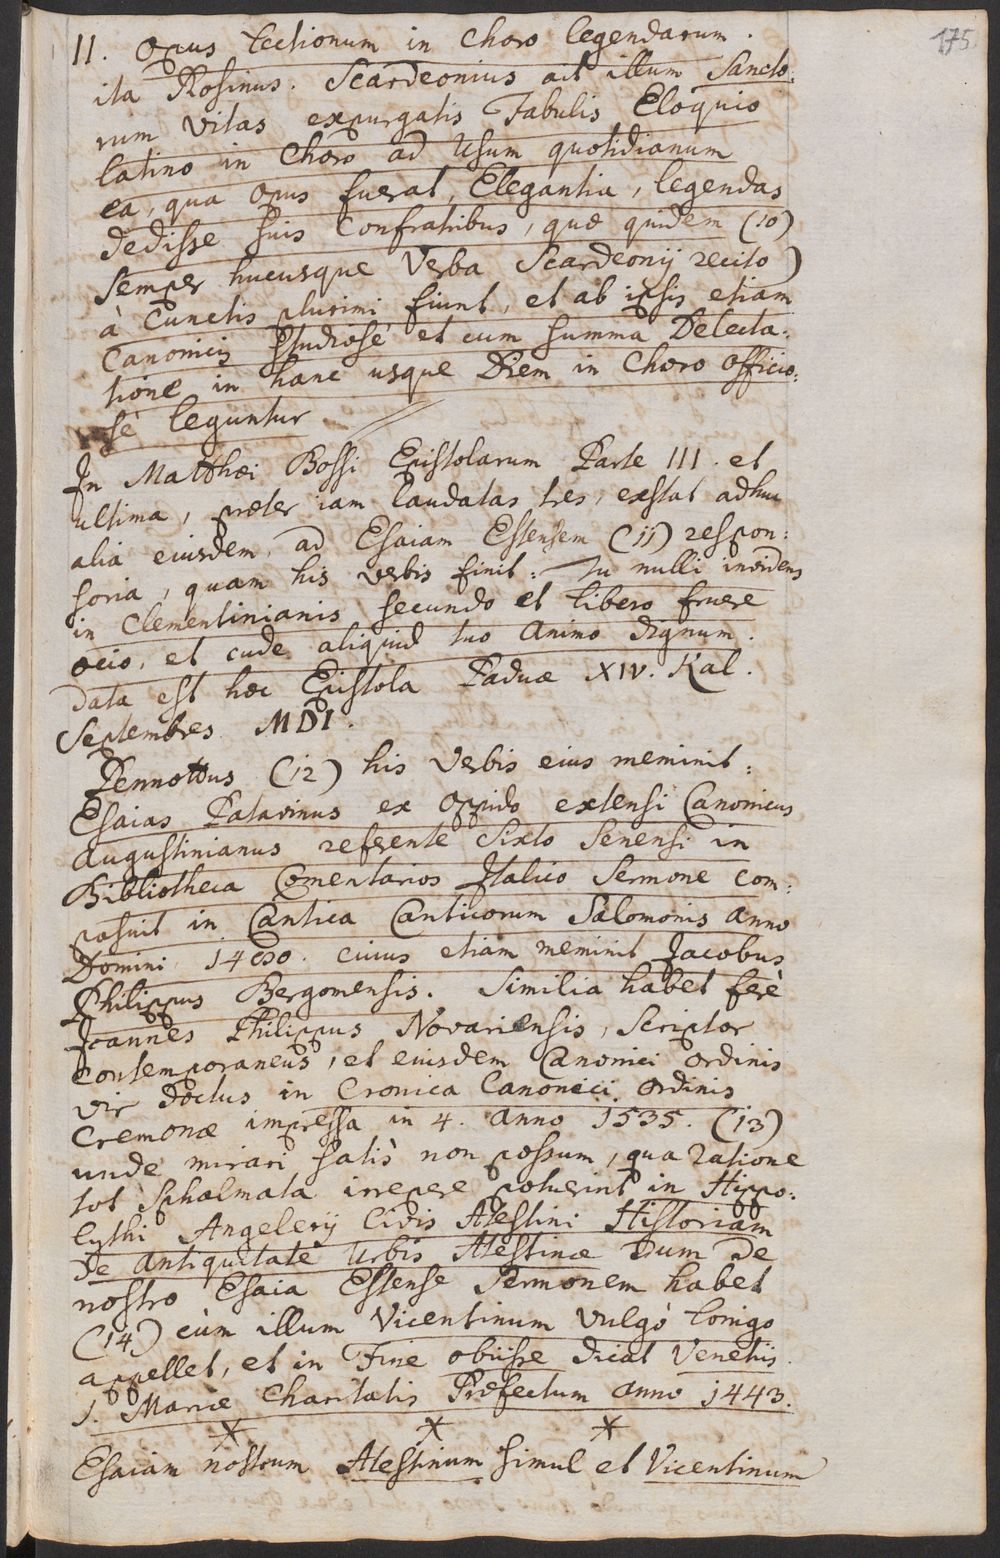 175
II. Opus Lectionum in Choro legendarum.
ita Rosinus. Scardeonius ait illum Sancto:
rum Vitas expurgatis Fabulis Eloquio
latino in Choro ad Usum quotidianum
ea, qua opus fuerat, Elegantia, legendas
dedisse suis Confratribus, quae quidem (10)
semper hucusque Verba Scardeonij recito)
à Cunctis plurimi fiunt, et ab ipsis etiam
Canonicis studiosè et cum summa Delecta:
tione in hanc usque Diem in Choro officio:
sè leguntur
In Matthaei Bossi Epistolarum Parte III. et
ultima, praeter iam laudatas tres, exstat adhuc
alia eiusdem, ad Esaiam Estensem (11) respon:
soria, quam his verbis finit: Tu nulli invidens
in Clementinianis secundo et libero fruere
ocio, et cude aliquid tuo animo dignum.
Data est haec Epistola Paduae XIV. Kal.
Septembres MDI.
Pennottus (12) his Verbis eius meminit:
Esaias Patavinus ex oppido extensi Canonicus
Augustinianus referente Sixto Senensi in
Bibliotheca Comentarios Italico Sermone com:
posuit in Cantica Canticorum Salomonis anno
Domini cuius etiam meminit Jacobus
Philippus Bergomensis. Similia habet ferè
Joannes Philippus Novariensis, Scriptor
contemporaneus, et eiusdem Canonici ordinis
vir doctus in Cronica Canonici ordinis
Cremonae impressa in 4. anno 1535. (13)
unde mirari satis non possum, qua ratione
tot Sphalmata irrepere potuerint in Hippo:
lythi Angelerij Civis Atestini Historiam
De antiquitate Urbis Atestinae Dum de
nostro Esaia Estense sermonem habet
(14) cùm illum Vicentinum vulgò Lonigo
appellet, et in Fine obiisse dicat Venetiis
S. Mariae Charitatis Praefectum anno 1443.
* * *
Esaiam nostrum Atestinum simul et Vicentinum